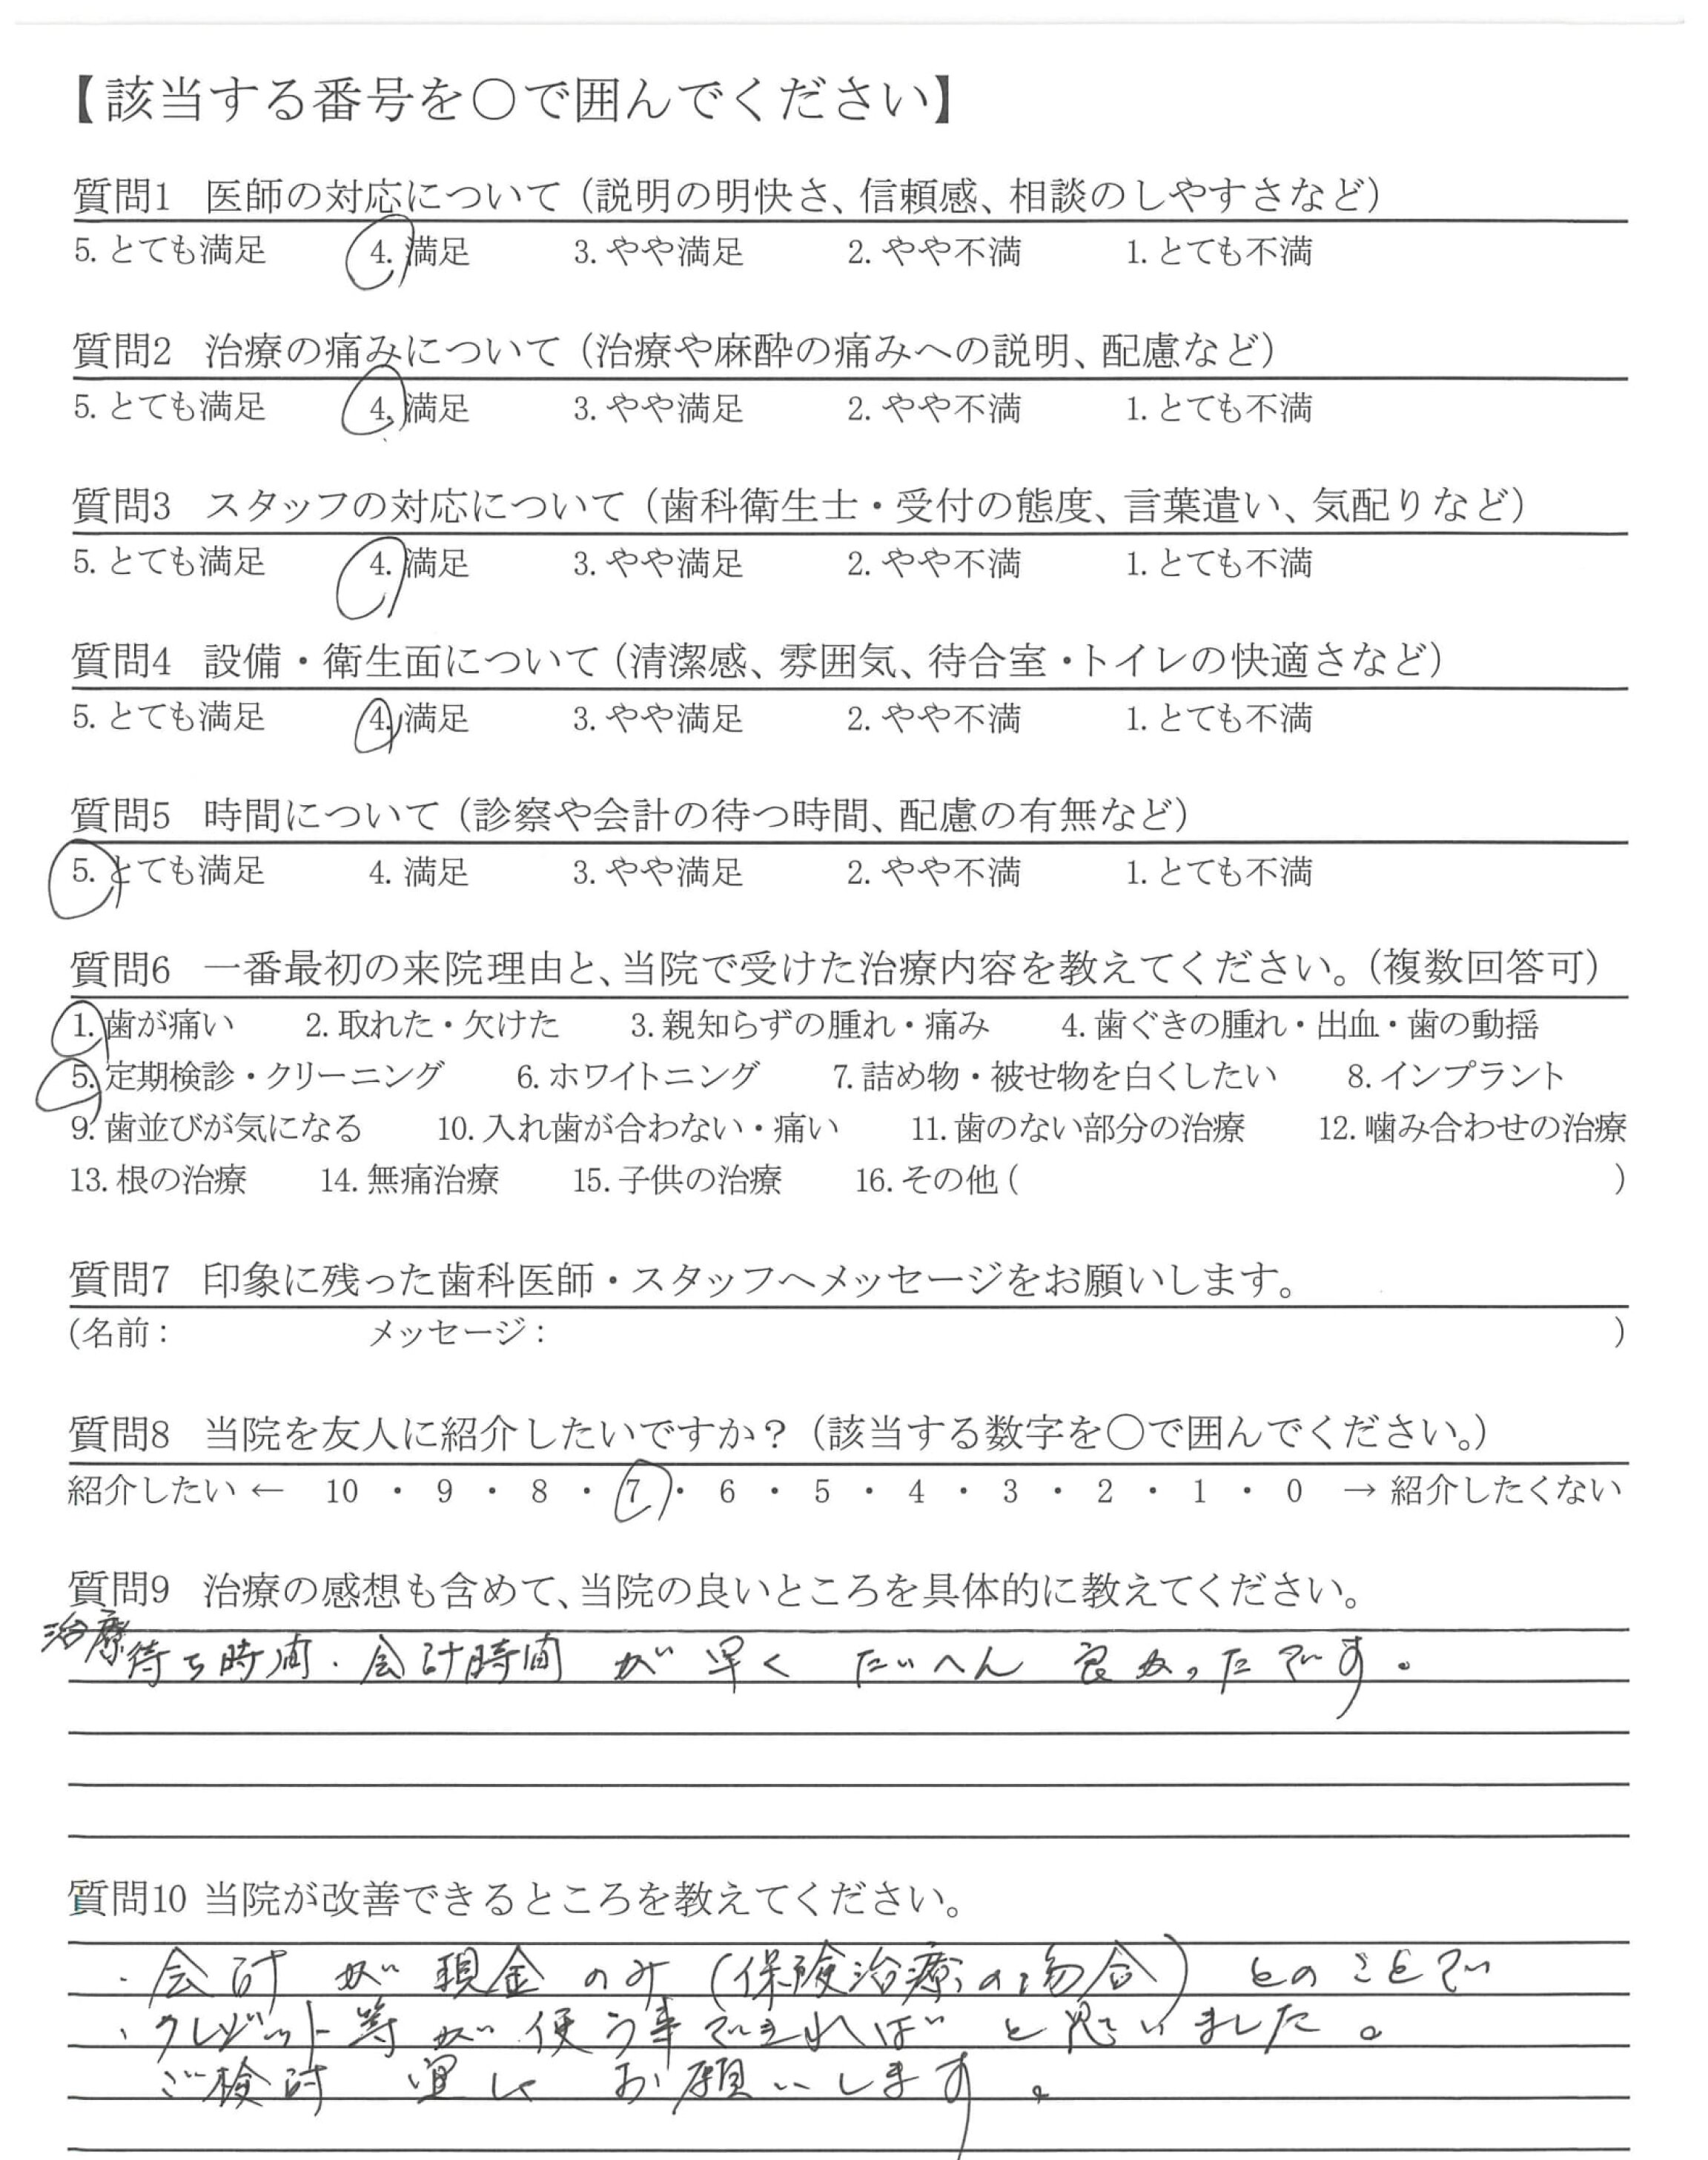 【該当する番号を〇で囲んでください】
質問1 医師の対応について（説明の明快さ、信頼感、相談のしやすさなど）
5. とても満足 4. 満足 3. やや満足 2. やや不満 1. とても不満
質問2 治療の痛みについて（治療や麻酔の痛みへの説明、配慮など）
5. とても満足 4. 満足 3. やや満足 2. やや不満 1. とても不満
質問3 スタッフの対応について（歯科衛生士・受付の態度、言葉遣い、気配りなど）
5. とても満足 4. 満足 3. やや満足 2. やや不満 1. とても不満
質問4 設備・衛生面について（清潔感、雰囲気、待合室・トイレの快適さなど）
5. とても満足 4. 満足 3. やや満足 2. やや不満 1. とても不満
質問5 時間について（診察や会計の待つ時間、配慮の有無など）
5. とても満足 4. 満足 3. やや満足 2. やや不満 1. とても不満
質問6 一番最初の来院理由と、当院で受けた治療内容を教えてください。（複数回答可）
1. 歯が痛い 2. 取れた・欠けた 3. 親知らずの腫れ・痛み 4. 歯ぐきの腫れ・出血・歯の動揺
5. 定期検診・クリーニング 6. ホワイトニング 7. 詰め物・被せ物を白くしたい 8. インプラント
9. 歯並びが気になる 10. 入れ歯が合わない・痛い 11. 歯のない部分の治療 12. 噛み合わせの治療
13. 根の治療 14. 無痛治療 15. 子供の治療 16. その他 ( )
質問7 印象に残った歯科医師・スタッフへメッセージをお願いします。
(名前： メッセージ： )
質問8 当院を友人に紹介したいですか？（該当する数字を〇で囲んでください。）
紹介したい ← 10 ・ 9 ・ 8 ・ 7 ・ 6 ・ 5 ・ 4 ・ 3 ・ 2 ・ 1 ・ 0 → 紹介したくない
質問9 治療の感想も含めて、当院の良いところを具体的に教えてください。
治療待ち時間・会計時間が早くたいへん良かったです。
質問10 当院が改善できるところを教えてください。
・会計が現金のみ（保険治療の場合）とのことで
、クレジット等が使う事できればと思いました。
ご検討宜しくお願いします。